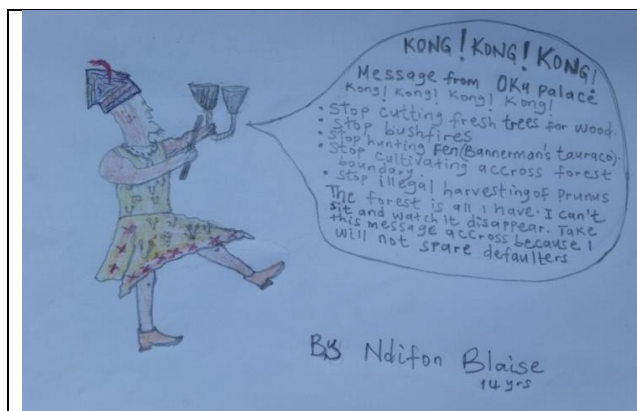 KONG! KONG! KONG!
Message from OKU palace
Kong! Kong! Kong! Kong!
• Stop cutting fresh trees for wood.
• Stop bushfires
• Stop hunting Fen (Bannerman's tauraco).
• Stop cultivating accross forest
boundary.
• Stop illegal harvesting of Prunus
The forest is all I have. I can't
sit and watch it disappear. Take
this message accross because I
will not spare defaulters
By Ndifon Blaise
14 yrs